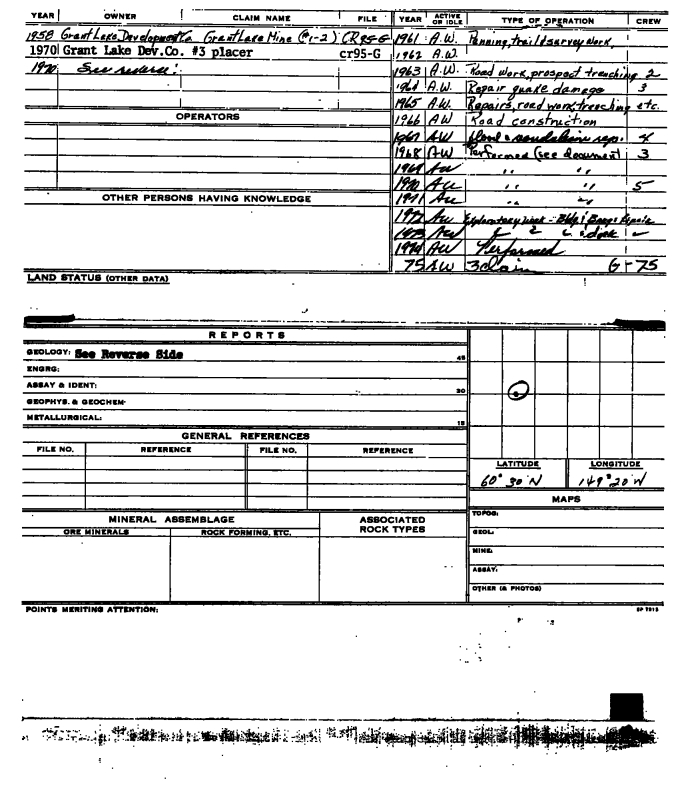 YEAR OWNER CLAIM NAME FILE YEAR ACTIVE OR IDLE TYPE OF OPERATION CREW
1958 Grant Lake Development Co. Grant Lake Mine (#1-2) CR95-G 1961 A.W. Panning, trail & survey work,
1970 Grant Lake Dev.Co. #3 placer cr95-G 1962 A.W.
1970 See reverse! 1963 A.W. Road work, prospect trenching 2
1964 A.W. Repair quake damage 3
1965 A.W. Repairs, road work, trenching etc.
OPERATORS 1966 AW Road construction
1967 AW flood & rep. 4
1968 AW Performed (see document 3
1969 AW " "
1970 AW " " 5
OTHER PERSONS HAVING KNOWLEDGE 1971 AW " "
1972 AW Exploratory work - Bldg & Repair
1973 AW
1974 AW Performed
75 AW 3 claim G-75
LAND STATUS (OTHER DATA)
REPORTS
GEOLOGY: See Reverse Side 45
ENGRG:
ASSAY & IDENT: 30
GEOPHYS. & GEOCHEM·
METALLURGICAL: 15
GENERAL REFERENCES
FILE NO. REFERENCE FILE NO. REFERENCE
LATITUDE LONGITUDE
60° 30'N 149° 20'W
MAPS
MINERAL ASSEMBLAGE ASSOCIATED ROCK TYPES TOPOG:
ORE MINERALS ROCK FORMING, ETC. GEOL:
MINE:
ASSAY:
OTHER (& PHOTOS)
POINTS MERITING ATTENTION: SP 7913